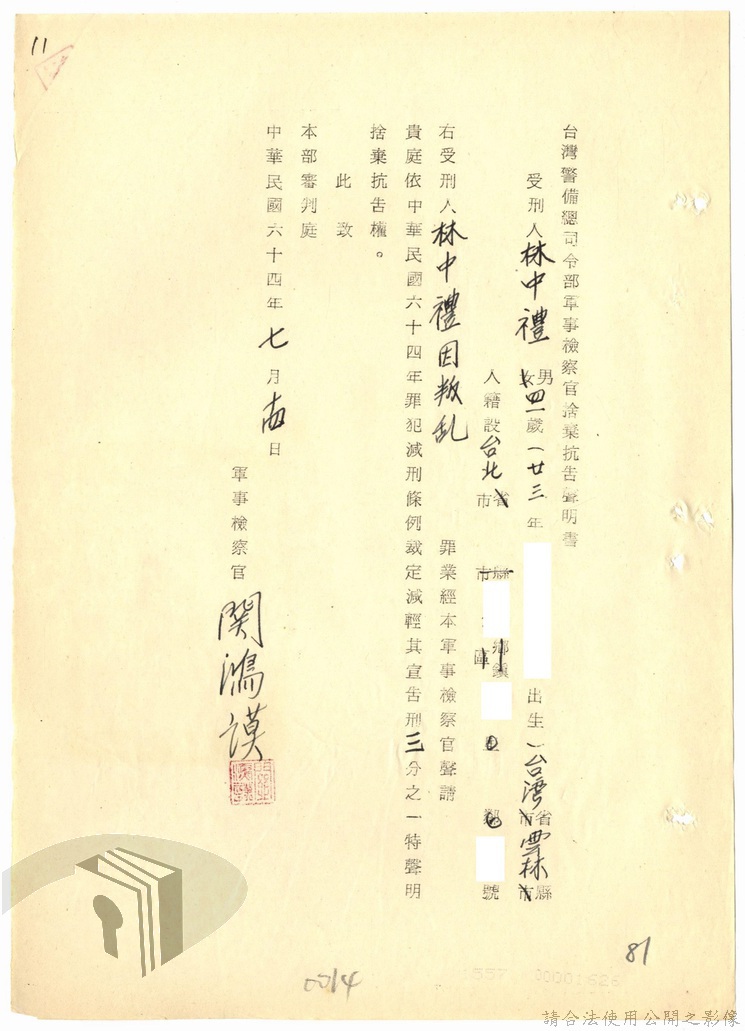 11
台灣警備總司令部軍事檢察官捨棄抗告聲明書
受刑人林中禮 男女四一歲(廿三年 出生)台灣省市雲林縣市
人籍設台北省市 縣市 鄉鎮區 里 鄰 號
右受刑人林中禮因叛乱 罪業經本軍事檢察官聲請
貴庭依中華民國六十四年罪犯減刑條例裁定減輕其宣告刑三分之一特聲明
捨棄抗告權。
此致
本部審判庭
中華民國六十四年七月 日
軍事檢察官 関鴻謨
81
0014
1557 00001626
請合法使用公開之影像